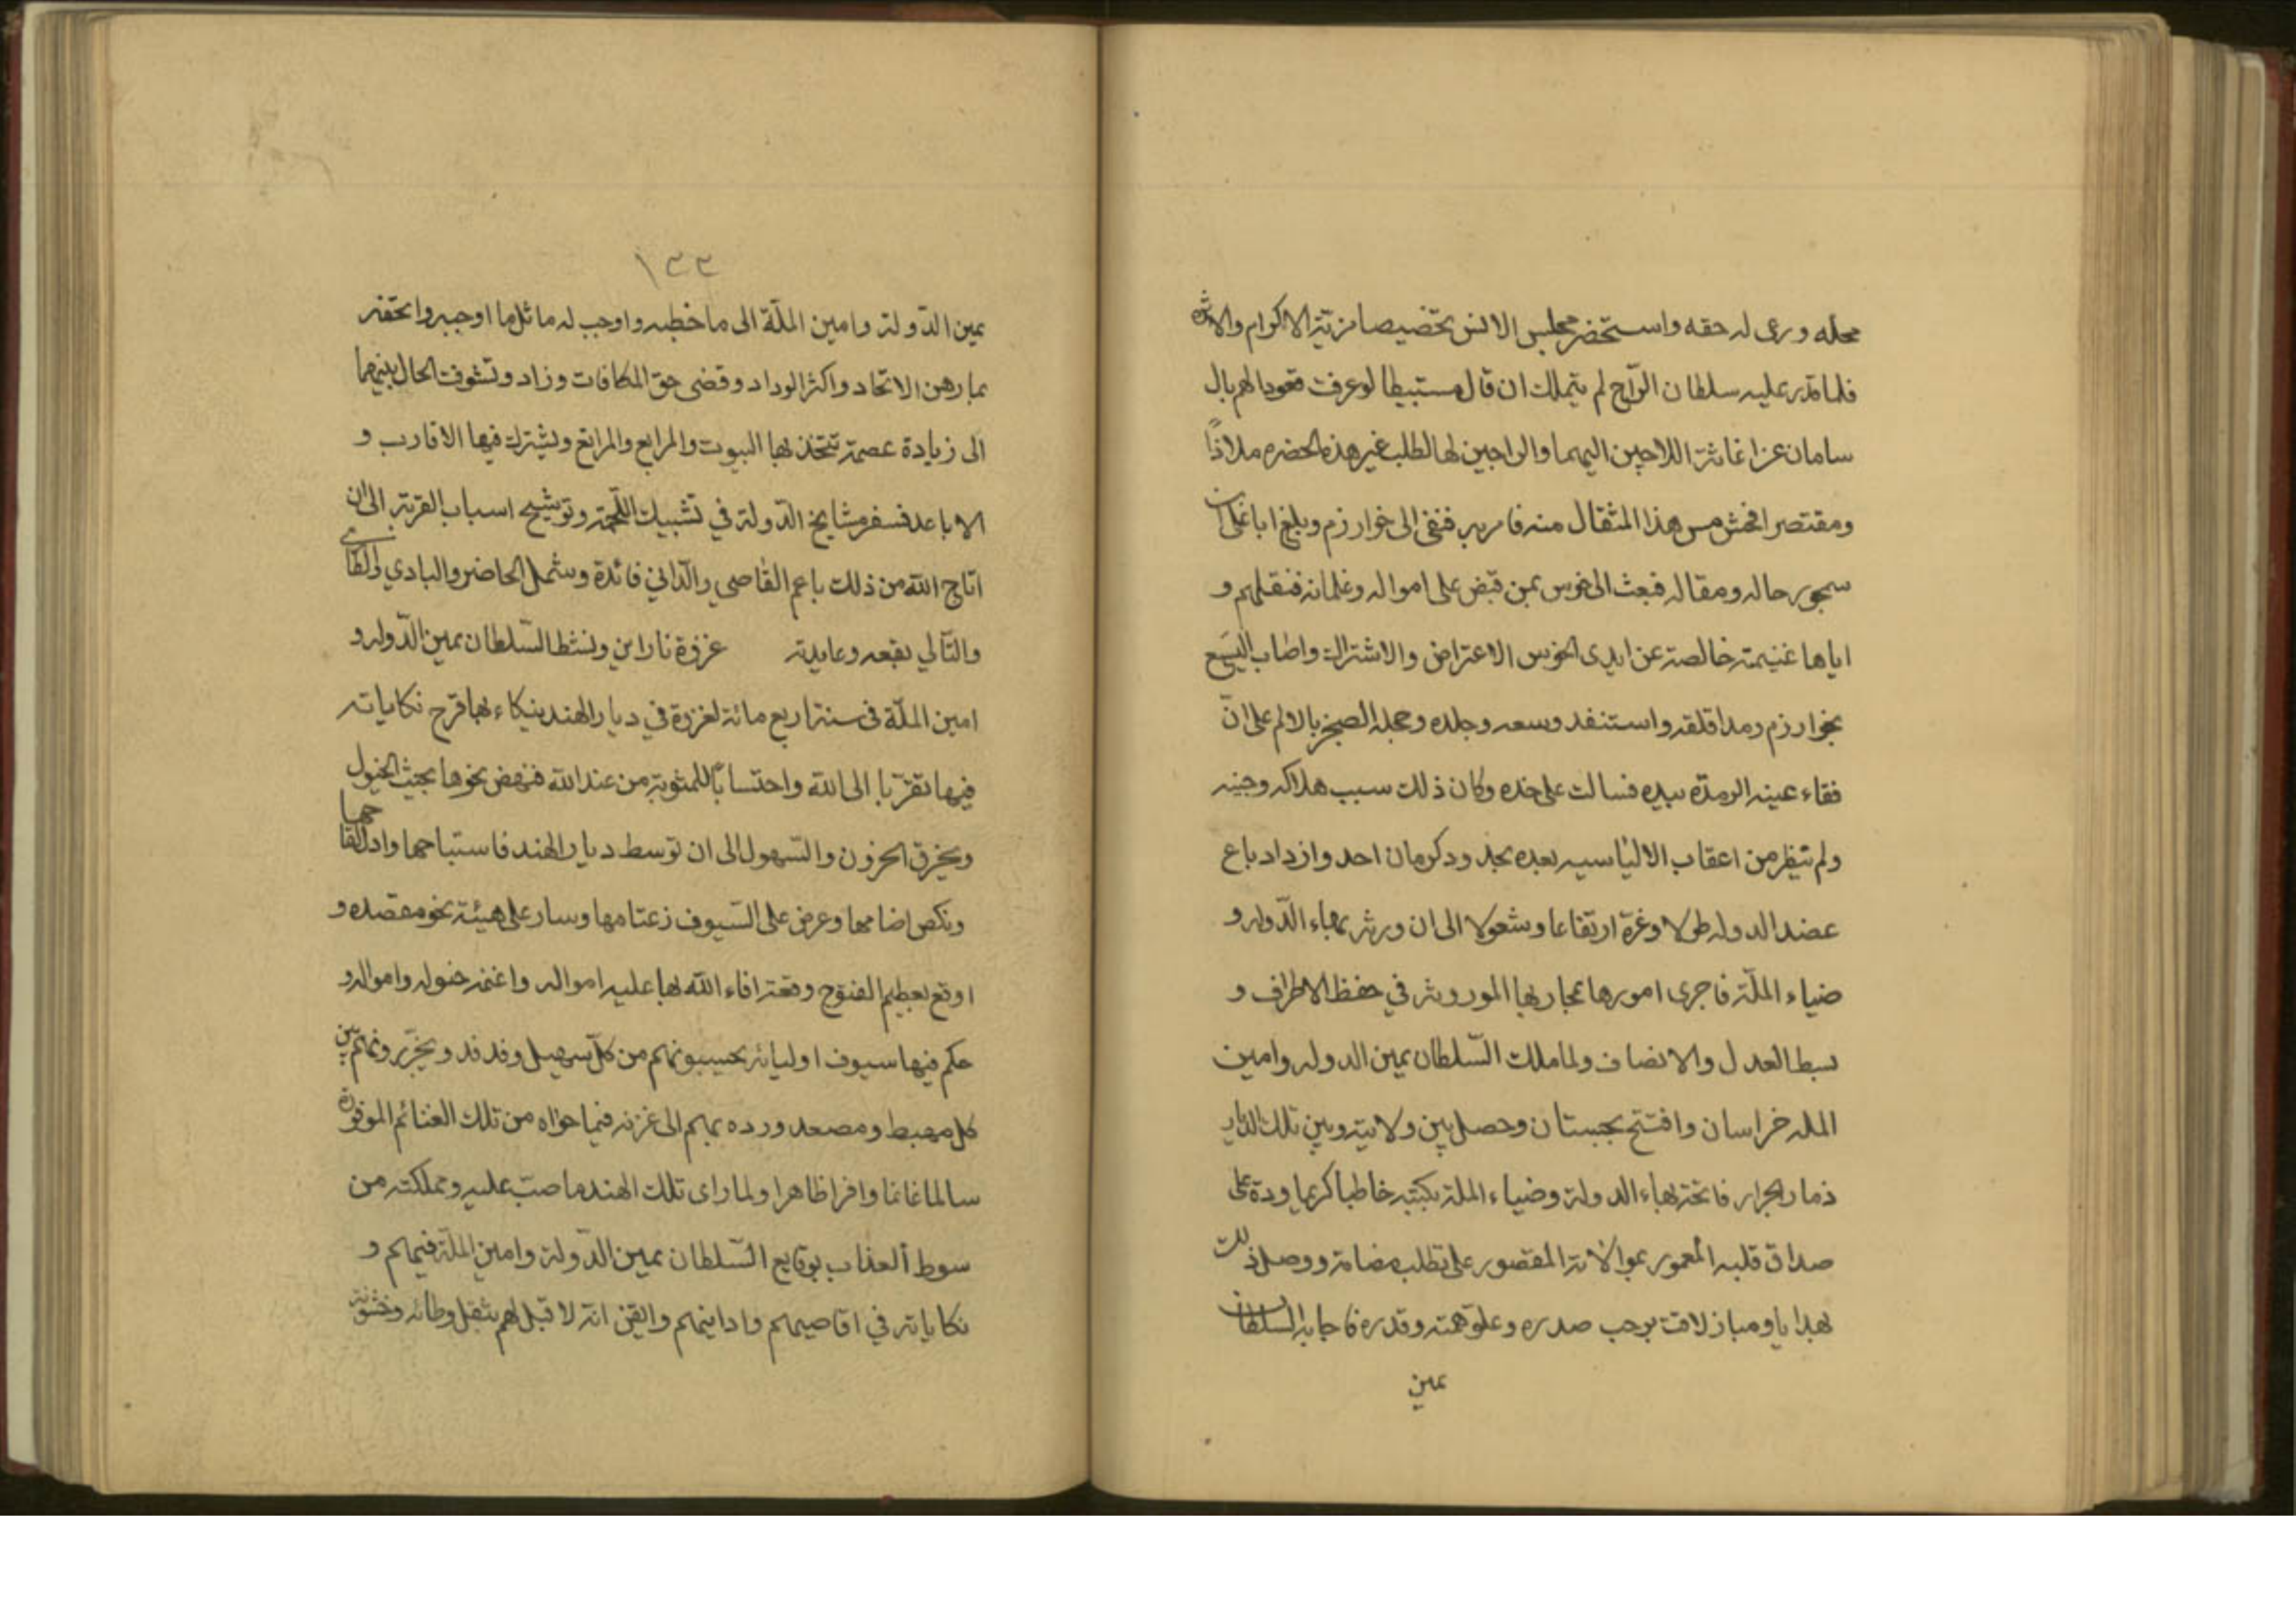 محله ورعى له حقه واستحضر مجلس الانس تخضيصا مزيّة الاكرام والاثره
فلما قدر عليه سلطان الرّاح لم يتملك ان قال مستبيطا لوعرفت قعودا لهم بال
سامان عن اغاثة اللاجين اليهما والراجين لها لطلب غير هذه الحضره ملاذاً
ومقتصر افحش من هذا المثقال منه فامر به فنفى الى خوارزم وبلغ ابا على بن
سمجور حاله ومقاله فبعث الى خوس بمن قبض على امواله وغلمانه فنقلهم و
اياها غنيمة خالصة عن ايدى الخوس الاعتراض والاشتراك واصاب اليسع
بخوارزم رمد اقلقه واستنفد وسعه وجلده وحمله الضجر بالالم على انّ
فقاء عينه الرمدّه بيده فسالت على خده وكان ذلك سبب هلاكه وحينه
ولم يتيفر من اعقاب الالياسيه بعده بحد ود كرمان احد وازداد باع
عضد الدوله طولا وغرة ارتقاعا وشعولا الى ان ورثه بهاء الدّوله و
ضياء الملّة فاجرى امورها بمجاريها الموروثه في حفظ الاطراف و
بسط العدل والانصاف ولما ملك السّلطان يمين الدوله وامين
المله خراسان وافتتح بجستان وحصل بين ولايته وبين تلك الديار
ذمار الجرار فاتحته بهاء الدولة وضياء الملة بكتبه خاطبا كريما ودة على
صداق قلبه المعمور بموالاته المقصور على تطلب مضامة ووصل ذلك
بهدايا ومباز لاقت برحب صدره وعلوّ همته وقدره فاجابه السلطان
يمين
١٣٣
يمين الدّولة وامين الملّة الى ما خطبه واوجب له ماثل ما اوجبه واتحفه
بما رهن الاتحاد واكثر الوداد وقضى حق المكافات وزاد وتشوفت الحال بينهما
الى زيادة عصمة تتحذ بها البيوت والمرابع والمراتع ويشترك فيها الاقارب و
الاباعد فسفر مشايخ الدّولة في تشبيك اللّحمة وتوشيح اسباب القربة الى ان
اتاح الله من ذلك باعم القاصي والدّاني فائدة وشمل الحاضر والبادي والطارى
والتّالي نفعه وعايدته غزوة ناراين ونشط السّلطان يمين الدّوله و
امين الملّة فى سنة اربع مائة لغزوة في ديار الهند ينكاء بها قرح نكاياته
فيها تقرّبا الى الله واحتساباً للمثوبة من عند الله فنهض نحوها يحثّ الخيول
ويخرق الحزون والسّهول الى ان توسط ديار الهند فاستباحها واذل لقاحها
ونكص اضامها وعرض على السّيوف زعمامها وسار على هيئة نحو مقصده و
اوقع بعظيم الفتوح وقعة افاء الله بها عليه امواله واغنمه خيوله وامواله و
حكم فيها سيوف اوليائه يحسبونهم من كلّ سهل وفدفد ويخبّرونهم بين
كل مهبط ومصعد ورده بهم الى غزنه فيما حواه من تلك الغنائم الموفورة
سالما غانما وافرا ظاهرا ولما راى تلك الهند ما صبّ عليه ومملكته من
سوط ألعذاب بوقايع السّلطان يمين الدّولة وامين الملّة فيهم و
نكاياته في اقاصيهم وادانيهم وايقن انّه لا قبل لهم بثقل وطائه وخشونته